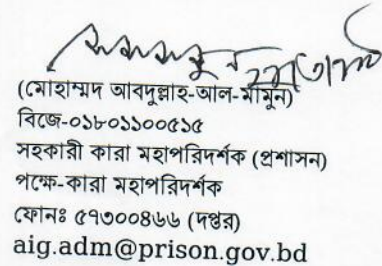 (মোহাম্মদ আবদুল্লাহ-আল-মামুন)
বিজে-০১৮০১১০০৫১৫
সহকারী কারা মহাপরিদর্শক (প্রশাসন)
পক্ষে-কারা মহাপরিদর্শক
ফোনঃ ৫৭৩০০৪৬৬ (দপ্তর)
aig.adm@prison.gov.bd